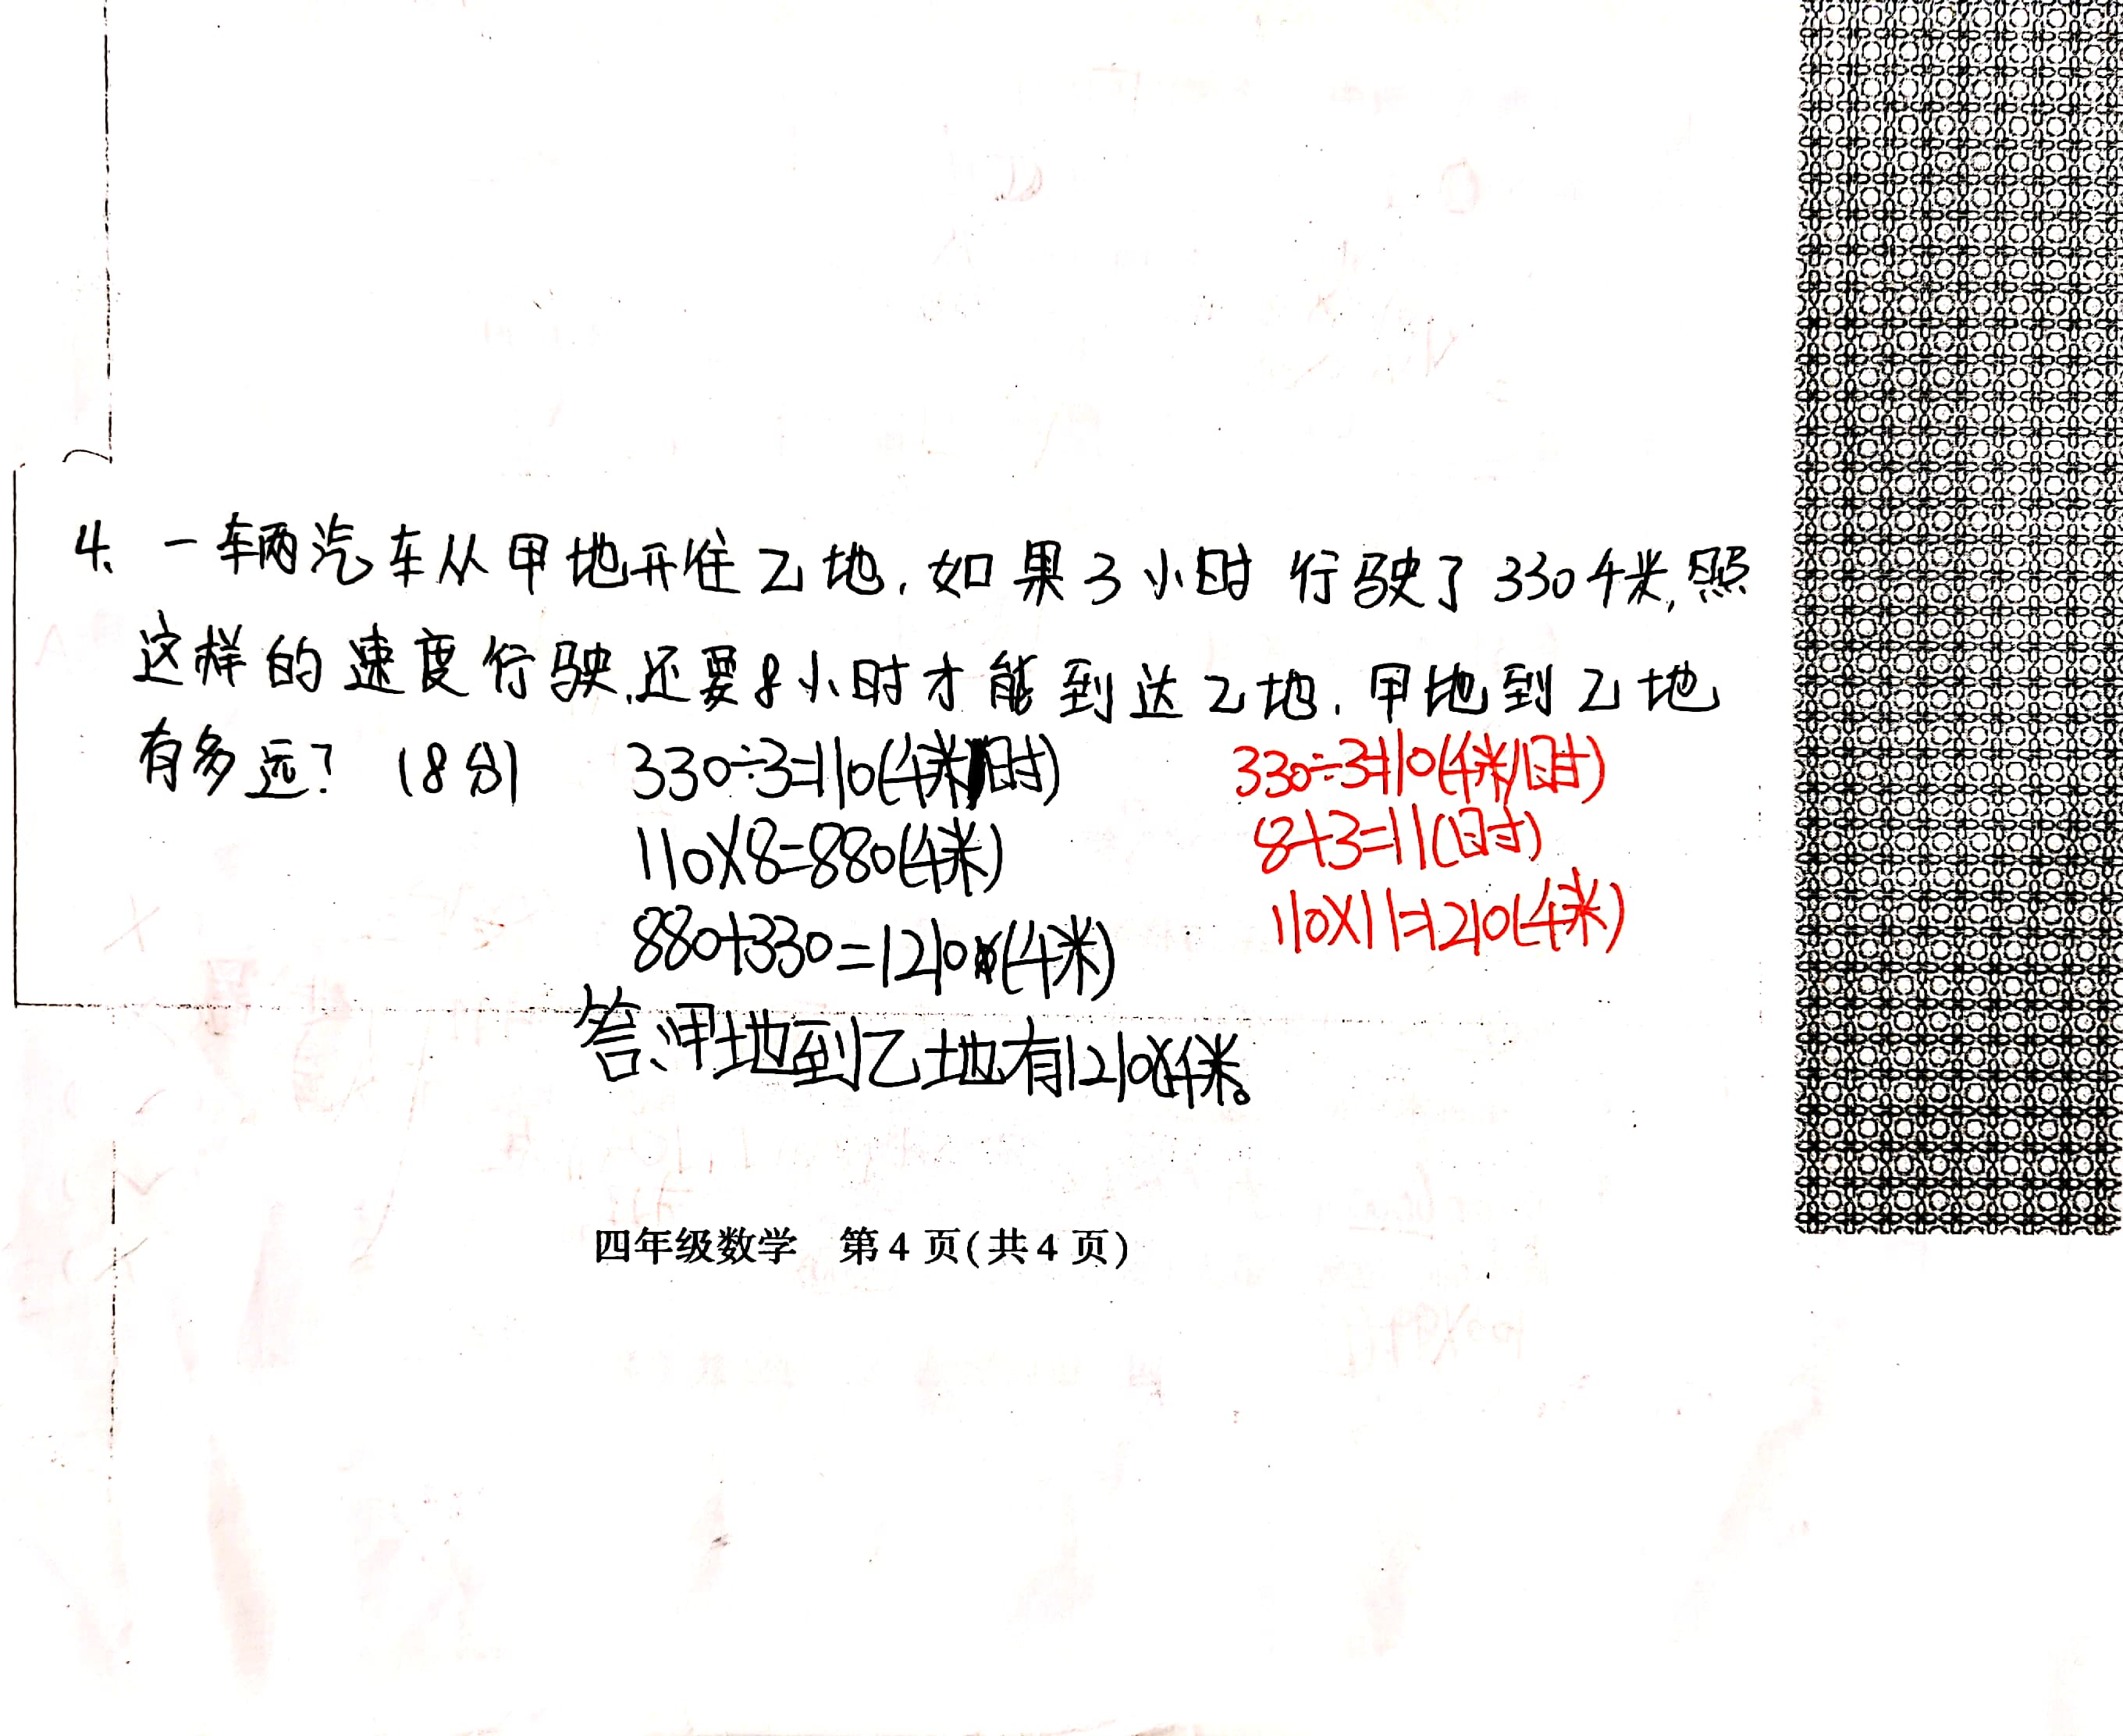 4. 一辆汽车从甲地开往乙地,如果3小时行驶了330千米,照
这样的速度行驶,还要8小时才能到达乙地.甲地到乙地
有多远?(8分)
330÷3=110(千米/时)
110×8=880(千米)
880+330=1210(千米)
答:甲地到乙地有1210千米。
330÷3=110(千米/时)
8+3=11(时)
110×11=1210(千米)
四年级数学 第4页(共4页)